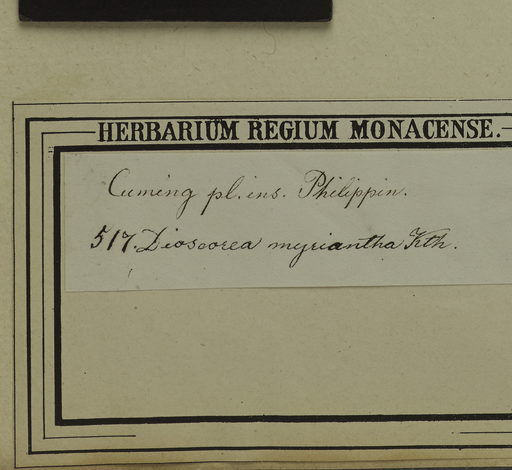 HERBARIUM REGIUM MONACENSE.
Cuming pl. ins. Philippin.
517. Dioscorea myriantha Kth.